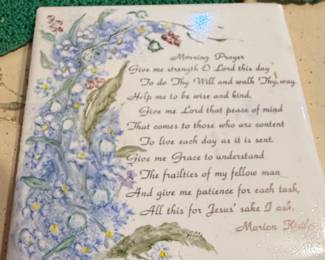 Morning Prayer
Give me strength O Lord this day
To do Thy Will and walk Thy way.
Help me to be wise and kind,
Give me Lord that peace of mind
That comes to those who are content
To live each day as it is sent.
Give me Grace to understand
The frailties of my fellow man
And give me patience for each task,
All this for Jesus' sake I ask.
Marion